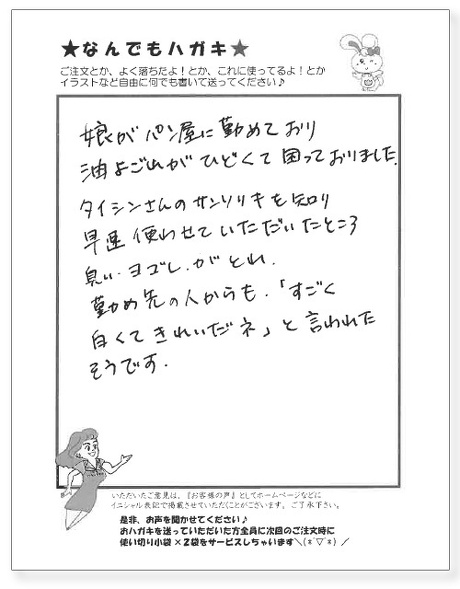 ★なんでもハガキ★
ご注文とか、よく落ちたよ!とか、これに使ってるよ!とか
イラストなど自由に何でも書いて送ってください♪
娘がパン屋に勤めており
油よごれがひどくて困っておりました。
タイシンさんのサンソリキを知り
早速使わせていただいたところ
臭い・ヨゴレ・がとれ.
勤め先の人からも.「すごく
白くてきれいだネ」と言われた
そうです.
いただいたご意見は、『お客様の声』としてホームページなどに
イニシャル表記で掲載させていただくことがございます。ご了承下さい。
是非、お声を聞かせてください♪
おハガキを送っていただいた方全員に次回のご注文時に
使い切り小袋×2袋をサービスしちゃいます＼(*´▽`*)／